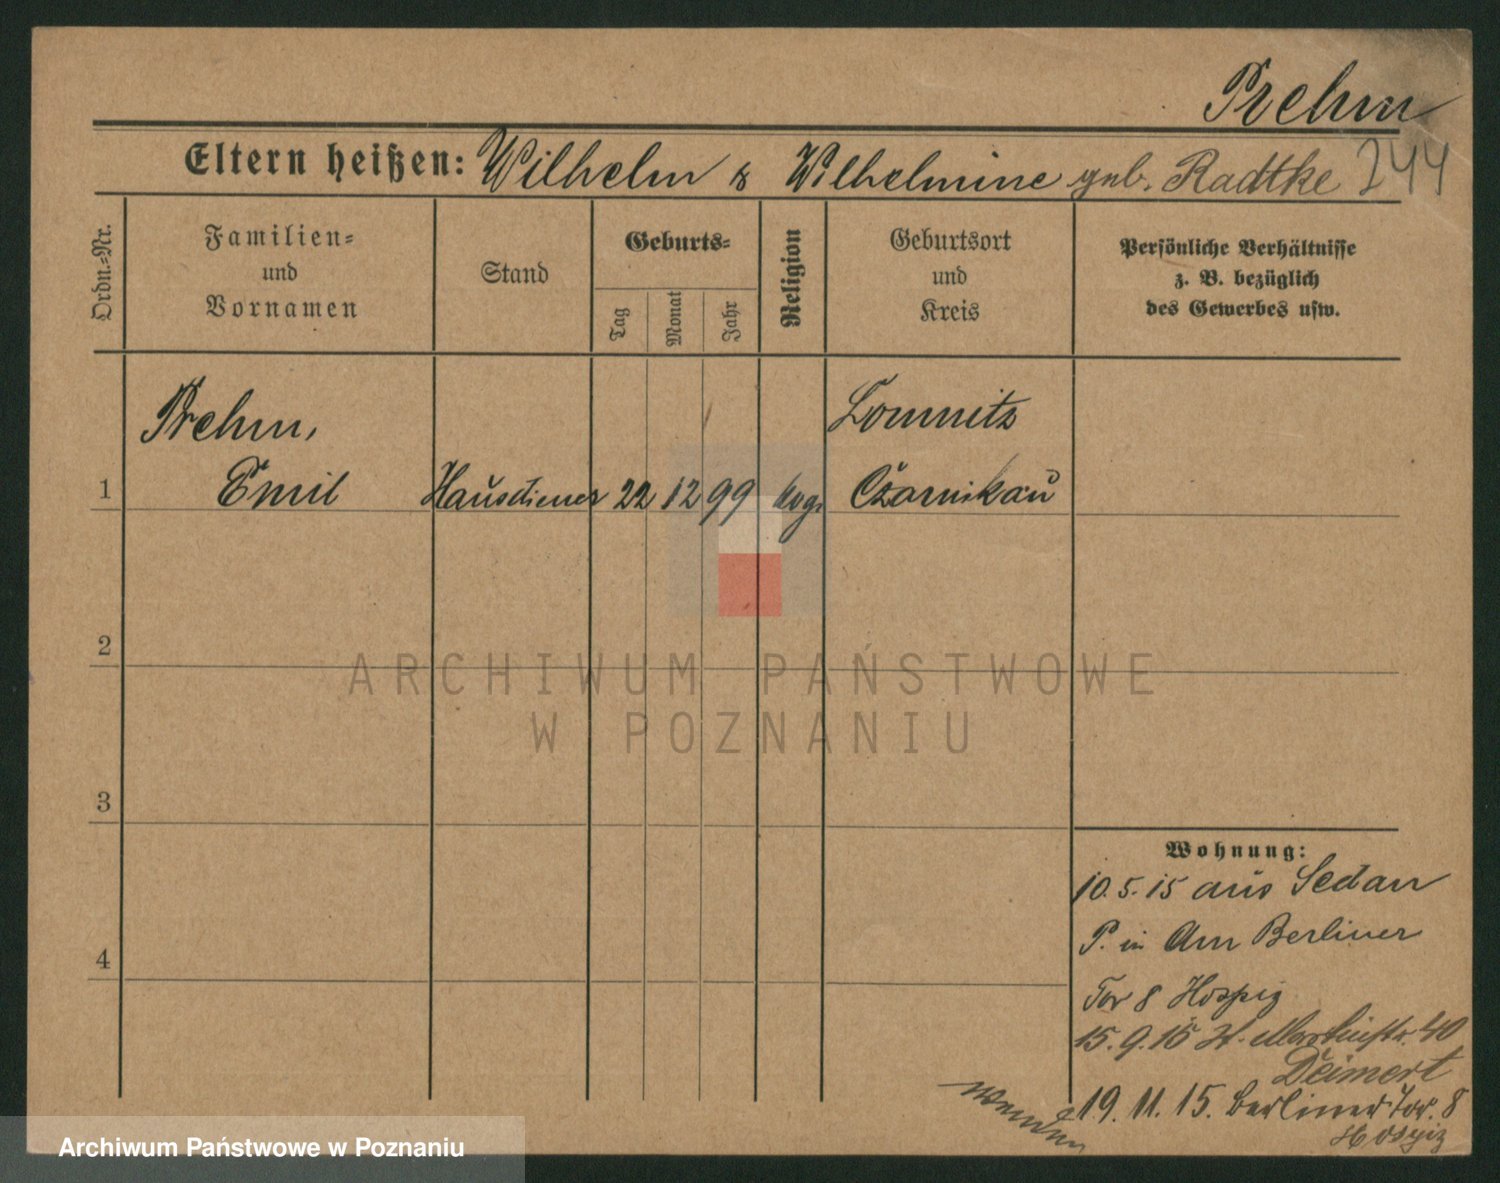 Prehm
Eltern heißen: Wilhelm & Wilhelmine geb. Radtke 244
Ordn.-Nr.
Familien-
und
Vornamen
Stand
Geburts-
Tag
Monat
Jahr
Religion
Geburtsort
und
Kreis
Persönliche Verhältnisse
z. B. bezüglich
des Gewerbes usw.
Prehm,
Lomnitz
1 Emil Hausdiener 22 12 99 evgl Czarnikau
2
ARCHIWUM PAŃSTWOWE
W POZNANIU
3
4
Wohnung:
10.5.15 aus Sedan
P. in Am Berliner
Tor 8 Hospiz
15.9.15 St. Martinstr. 40
Deimert
19.11.15. Berliner Tor. 8
Hospiz
wenden
Archiwum Państwowe w Poznaniu